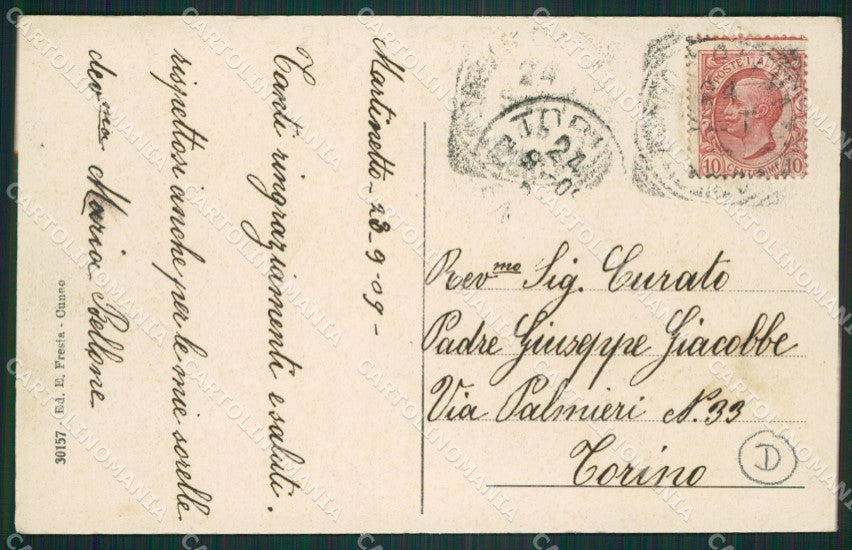 Martinetto - 23 - 9 - 09 -
Tanti ringraziamenti e saluti.
rispettosi anche per le mie sorelle
dev.ma Maria Bellone
30157 - Ed. E. Fresia - Cuneo
24
TORI
24
POSTE ITALIANE
10 CENTESIMI 10
Rev.mo Sig. Curato
Padre Giuseppe Giacobbe
Via Palmieri N. 33
Torino
D
CARTOLINOMANIA